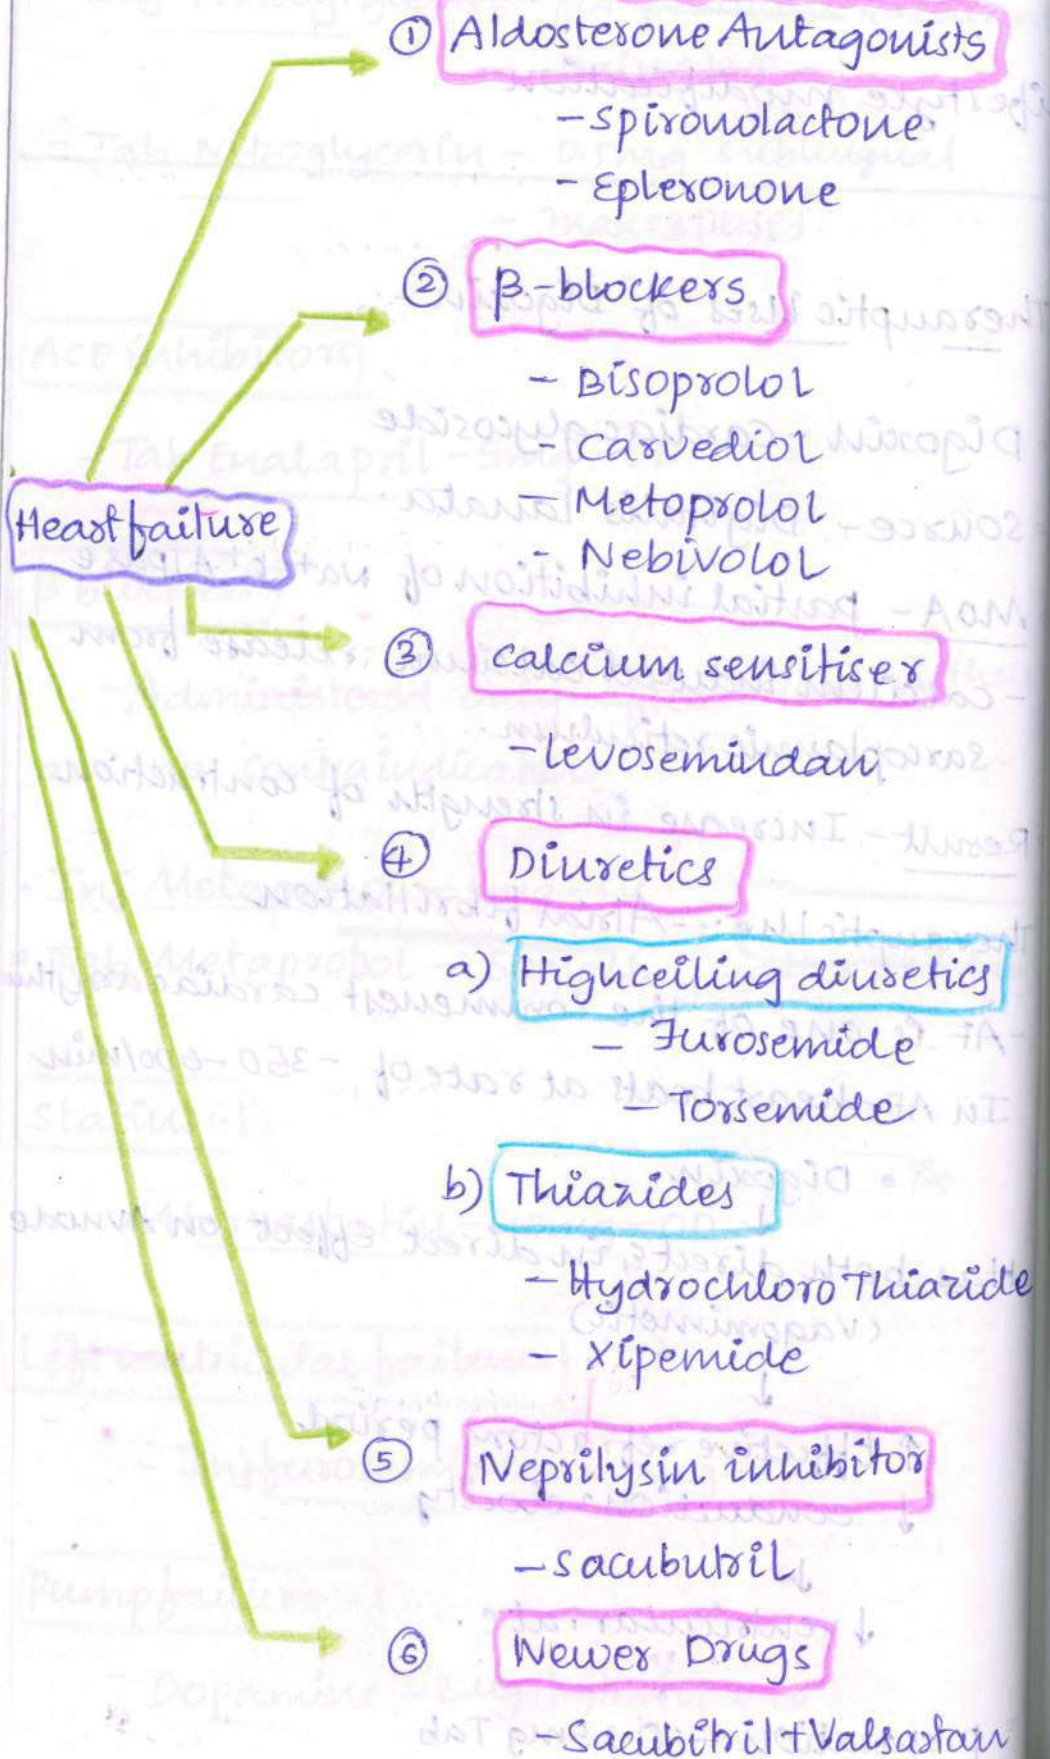 ① Aldosterone Antagonists
- Spironolactone
- Epleronone
② β-blockers
- Bisoprolol
- Carvediol
- Metoprolol
- Nebivolol
Heart failure
③ Calcium sensitiser
- levosemindan
④ Diuretics
a) High ceiling diuretics
- Furosemide
- Torsemide
b) Thiazides
- Hydrochloro Thiazide
- Xipemide
⑤ Neprilysin inhibitor
- Sacubutril
⑥ Newer Drugs
- Sacubitril + Valsartan